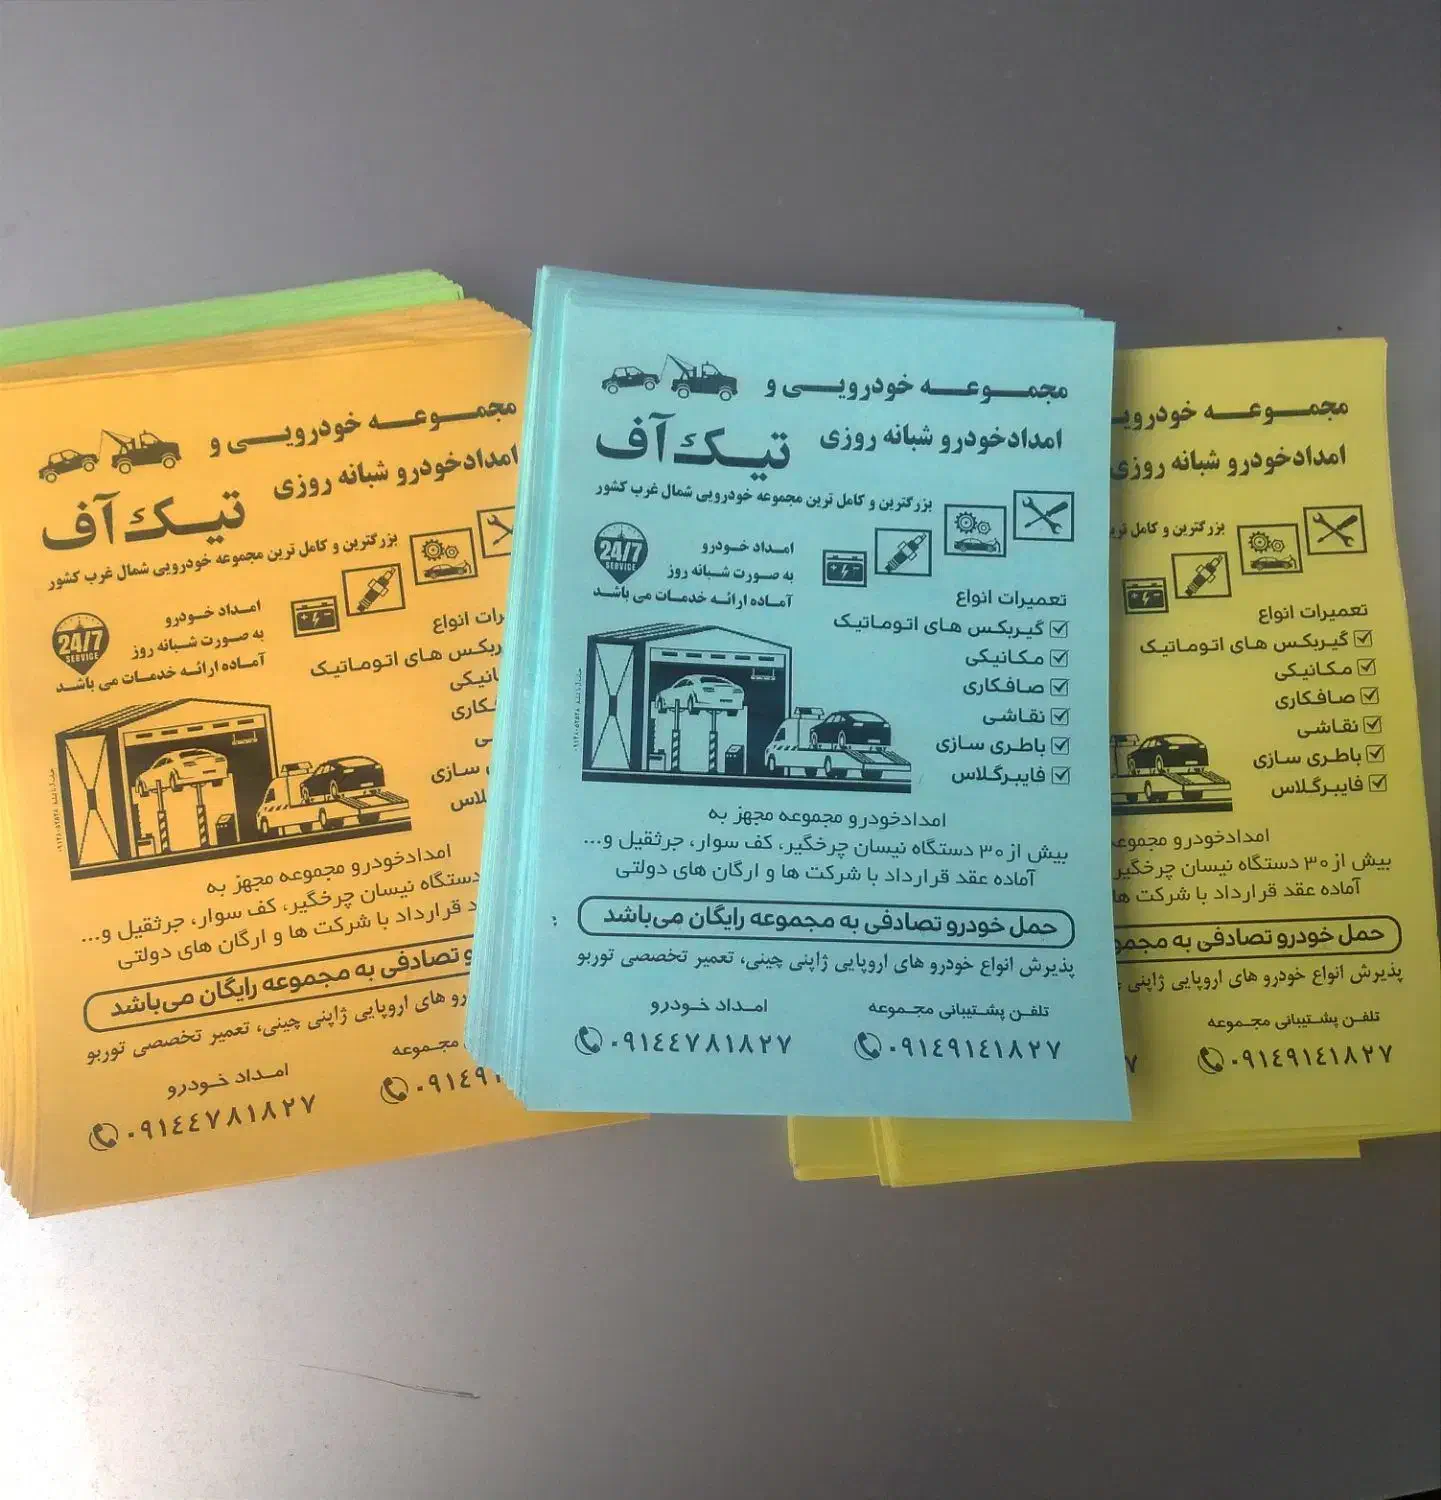 مجموعه خودرویی و
امدادخودرو شبانه روزی
تیک آف
بزرگترین و کامل ترین مجموعه خودرویی شمال غرب کشور
24/7
SERVICE
امداد خودرو
به صورت شبانه روز
آماده ارائه خدمات می باشد
تعمیرات انواع
گیربکس های اتوماتیک
مکانیکی
صافکاری
نقاشی
باطری سازی
فایبرگلاس
امدادخودرو مجموعه مجهز به
بیش از ۳۰ دستگاه نیسان چرخگیر، کف سوار، جرثقیل و...
آماده عقد قرارداد با شرکت ها و ارگان های دولتی
حمل خودرو تصادفی به مجموعه رایگان می‌باشد
پذیرش انواع خودرو های اروپایی ژاپنی چینی، تعمیر تخصصی توربو
تلفن پشتیبانی مجموعه
۰۹۱٤۹۱٤۱۸۲۷
امداد خودرو
۰۹۱٤٤۷۸۱۸۲۷
مجموعه خودرویی و
امدادخودرو شبانه روزی
تیک آف
بزرگترین و کامل ترین مجموعه خودرویی شمال غرب کشور
24/7
SERVICE
امداد خودرو
به صورت شبانه روز
آماده ارائه خدمات می باشد
انواع
اتوماتیک
سازی
امدادخودرو مجموعه مجهز به
دستگاه نیسان چرخگیر، کف سوار، جرثقیل و...
قرارداد با شرکت ها و ارگان های دولتی
تصادفی به مجموعه رایگان می‌باشد
های اروپایی ژاپنی چینی، تعمیر تخصصی توربو
مجموعه
۰۹۱٤۹۱
امداد خودرو
۰۹۱٤٤۷۸۱۸۲۷
مجموعه
امدادخودرو شبانه روزی
بزرگترین و کامل
تعمیرات انواع
گیربکس های اتوماتیک
مکانیکی
صافکاری
نقاشی
باطری سازی
فایبرگلاس
امدادخودرو
بیش از ۳۰ دستگاه نیسان چرخگیر
آماده عقد قرارداد با شرکت ها
حمل خودرو تصادفی به
پذیرش انواع خودرو های اروپایی ژاپنی
تلفن پشتیبانی مجموعه
۰۹۱٤۹۱٤۱۸۲۷